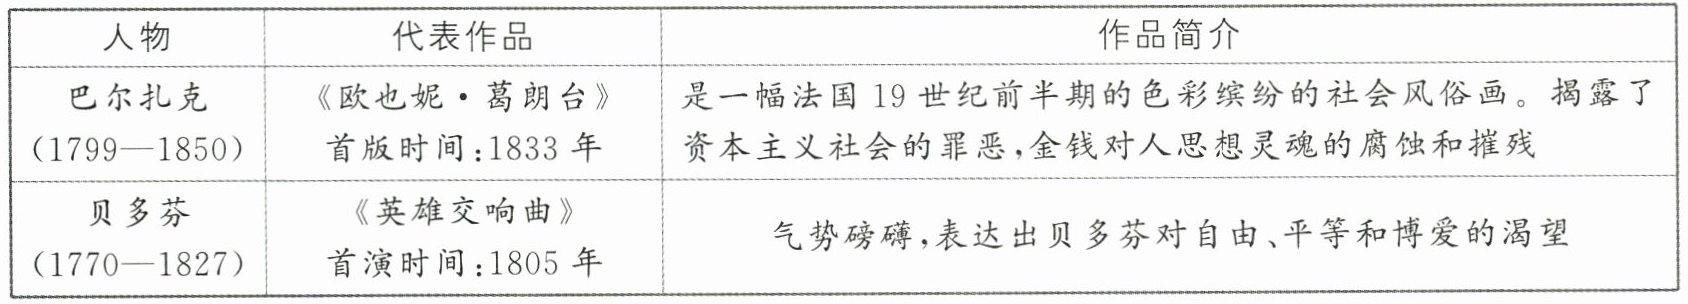 人物 代表作品 作品简介
巴尔扎克 《欧也妮·葛朗台》 是一幅法国19世纪前半期的色彩缤纷的社会风俗画。揭露了
(1799—1850) 首版时间:1833年 资本主义社会的罪恶,金钱对人思想灵魂的腐蚀和摧残
贝多芬 《英雄交响曲》
气势磅礴,表达出贝多芬对自由、平等和博爱的渴望
(1770—1827) 首演时间:1805年